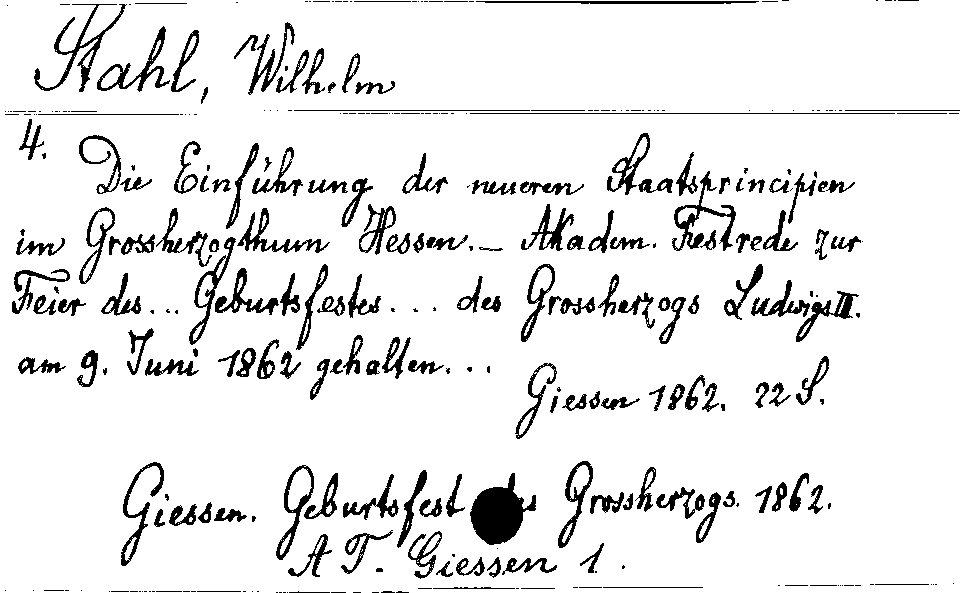 Stahl, Wilhelm
4.
Die Einführung der neueren Staatsprincipien
im Grossherzogthum Hessen. — Akadem. Festrede zur
Feier des... Geburtsfestes... des Grossherzogs Ludwigs III.
am 9. Juni 1862 gehalten...
Giessen 1862. 22 S.
Giessen. Geburtsfest des Grossherzogs. 1862.
A T. Giessen 1.